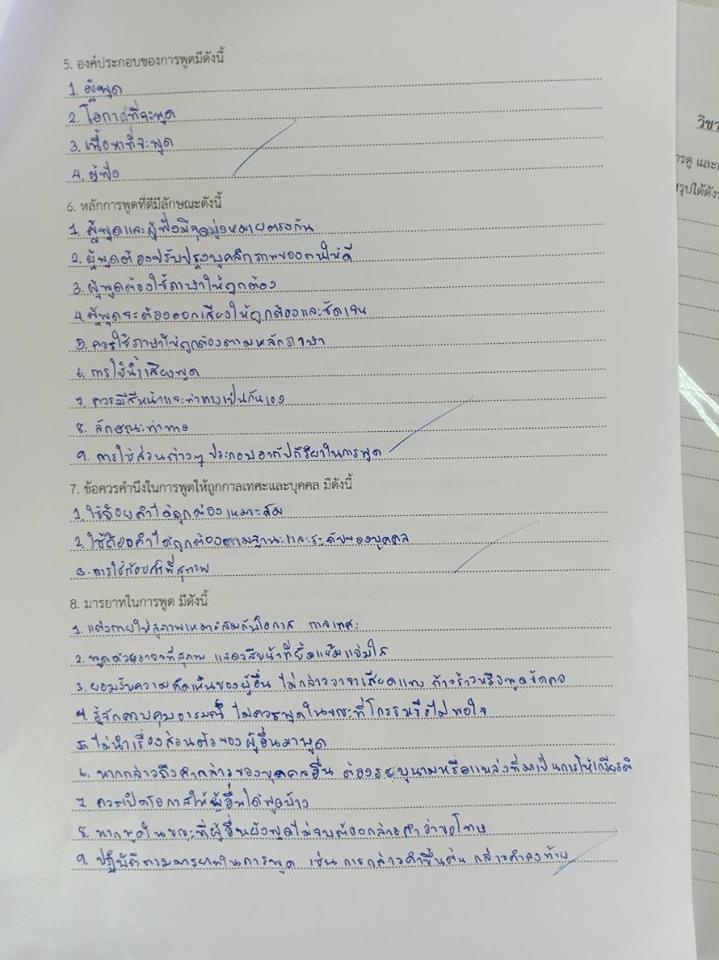 5. องค์ประกอบของการพูดมีดังนี้
1. ผู้พูด
2. โอกาสที่จะพูด
3. เนื้อหาที่จะพูด
4. ผู้ฟัง
6. หลักการพูดที่ดีมีลักษณะดังนี้
1. ผู้พูดและผู้ฟังมีจุดมุ่งหมายตรงกัน
2. ผู้พูดต้องปรับปรุงบุคลิกภาพของตนให้ดี
3. ผู้พูดต้องใช้ภาษาให้ถูกต้อง
4. ผู้พูดจะต้องออกเสียงให้ถูกต้องและชัดเจน
5. ควรใช้ภาษาให้ถูกต้องตามหลักภาษา
6. การใช้น้ำเสียงพูด
7. ควรมีสีหน้าและท่าทางเป็นกันเอง
8. ลักษณะท่าทาง
9. การใช้ส่วนต่างๆ ประกอบอากัปกิริยาในการพูด
7. ข้อควรคำนึงในการพูดให้ถูกกาลเทศะและบุคคล มีดังนี้
1. ใช้ถ้อยคำได้ถูกต้องเหมาะสม
2. ใช้ถ้อยคำได้ถูกต้องตามฐานะและระดับของบุคคล
3. การใช้ถ้อยคำที่สุภาพ
8. มารยาทในการพูด มีดังนี้
1. แต่งกายให้สุภาพเหมาะสมกับโอกาส กาลเทศะ
2. พูดด้วยวาจาที่สุภาพ แสดงสีหน้าที่ยิ้มแย้มแจ่มใส
3. ยอมรับความคิดเห็นของผู้อื่น ไม่กล่าววาจาเสียดแทง ก้าวร้าวหรือพูดขัดคอ
4. รู้จักควบคุมอารมณ์ ไม่ควรพูดในขณะที่โกรธหรือไม่พอใจ
5. ไม่นำเรื่องส่วนตัวของผู้อื่นมาพูด
6. หากกล่าวถึงคำกล่าวของบุคคลอื่น ต้องระบุนามหรือแหล่งที่มาเป็นการให้เกียรติ
7. ควรเปิดโอกาสให้ผู้อื่นได้พูดบ้าง
8. หากพูดในขณะที่ผู้อื่นยังพูดไม่จบต้องกล่าวคำว่าขอโทษ
9. ปฏิบัติตามมารยาทในการพูด เช่น การกล่าวคำขึ้นต้น กล่าวคำลงท้าย
วิชา